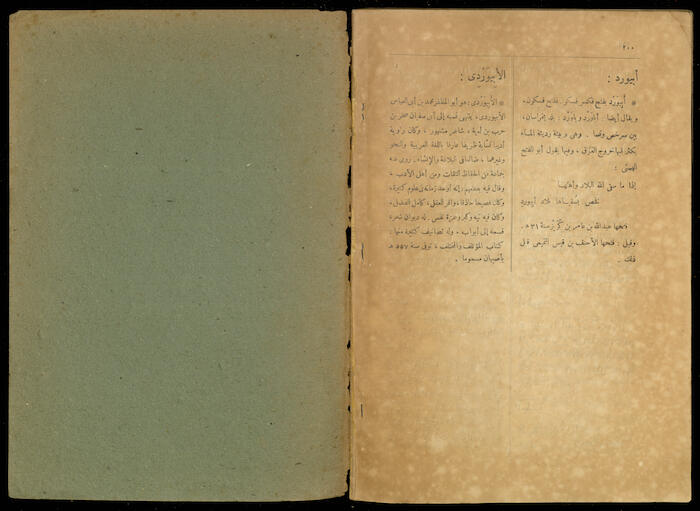 ٢٠٠
أبيورد :
* أَبِيوَرْد بفتح فكسر فسكون ففتح فسكون ،
ويقال أيضا : أباوَرْد وباوَرْد : بلد بخراسان ،
بين سرخس ونسا . وهى وبيئة رديئة الماء
يكثر فيها خروج العِرْق ، وفيها يقول أبو الفتح
البستى :
إذا ما سقى الله البلاد وأهلها
فخص بسُقياها بلاد أبيوردِ
فتحها عبدالله بن عامر بن كُرَيْز سنة ٣١ هـ .
وقيل : فتحها الأحنف بن قيس التميمى قبل
ذلك .
الأَبِيوَرْدِى :
* الأَبِيوَرْدِى : هو أبو المظفر محمد بن أبى العباس
الأبيوردى ، ينتهى نسبه إلى أبى سفيان صخر بن
حرب بن أمية ، شاعر مشهور ، وكان راوية
أديبا نسّابة ظريفا عارفا باللغة العربية والنحو
وغيرهما ، متقنا فى البلاغة والإنشاء . روى عنه
جماعة من الحفاظ الثقات ومن أهل الأدب .
وقال فيه بعضهم : إنه أوحد زمانه فى علوم كثيرة ،
وكان فصيحا حاذقا ، وافر العقل ، كامل الفضل ،
وكان فيه تيه وكبر وعزة نفس . له ديوان شعره
قسمه إلى أبواب . وله تصانيف كثيرة منها :
كتاب المؤتلف والمختلف ، توفى سنة ٥٥٧ هـ
بأصبهان مسموما .